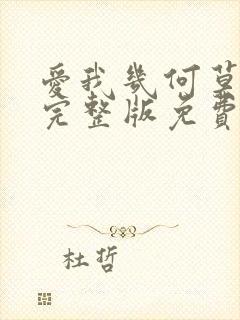 愛我幾何草
完整版免費
杜哲